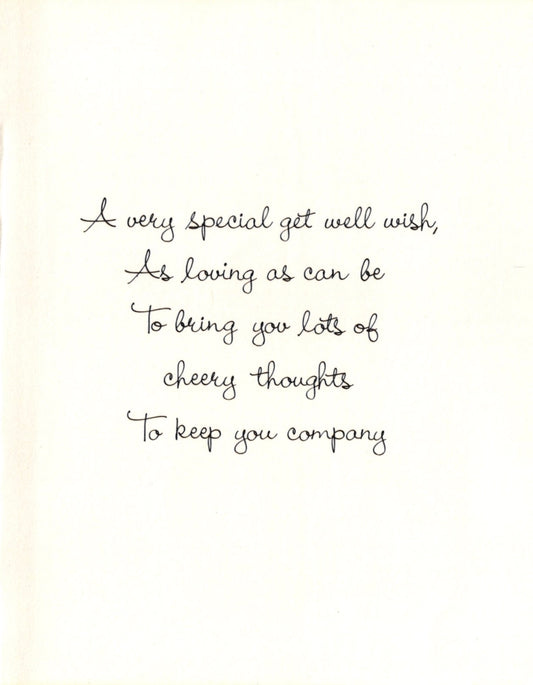 A very special get well wish,
As loving as can be
To bring you lots of
cheery thoughts
To keep you company